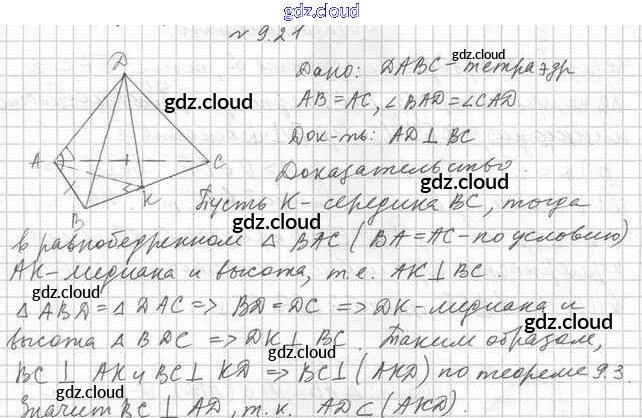 gdz.cloud
№ 9.21
Дано: DABC – тетраэдр
AB = AC, ∠BAD = ∠CAD
Док-ть: AD ⊥ BC
Доказательство
Пусть K – середина BC, тогда
в равнобедренном △ BAC (BA = AC – по условию)
AK – медиана и высота, т.е. AK ⊥ BC.
△ ABD = △ DAC => BD = DC => DK – медиана и
высота △ BDC => DK ⊥ BC. Таким образом,
BC ⊥ AK и BC ⊥ KD => BC ⊥ (AKD) по теореме 9.3.
Значит BC ⊥ AD, т.к. AD ⊂ (AKD).
D
A
B
C
K
gdz.cloud
gdz.cloud
gdz.cloud
gdz.cloud
gdz.cloud
gdz.cloud
gdz.cloud
gdz.cloud
gdz.cloud
gdz.cloud